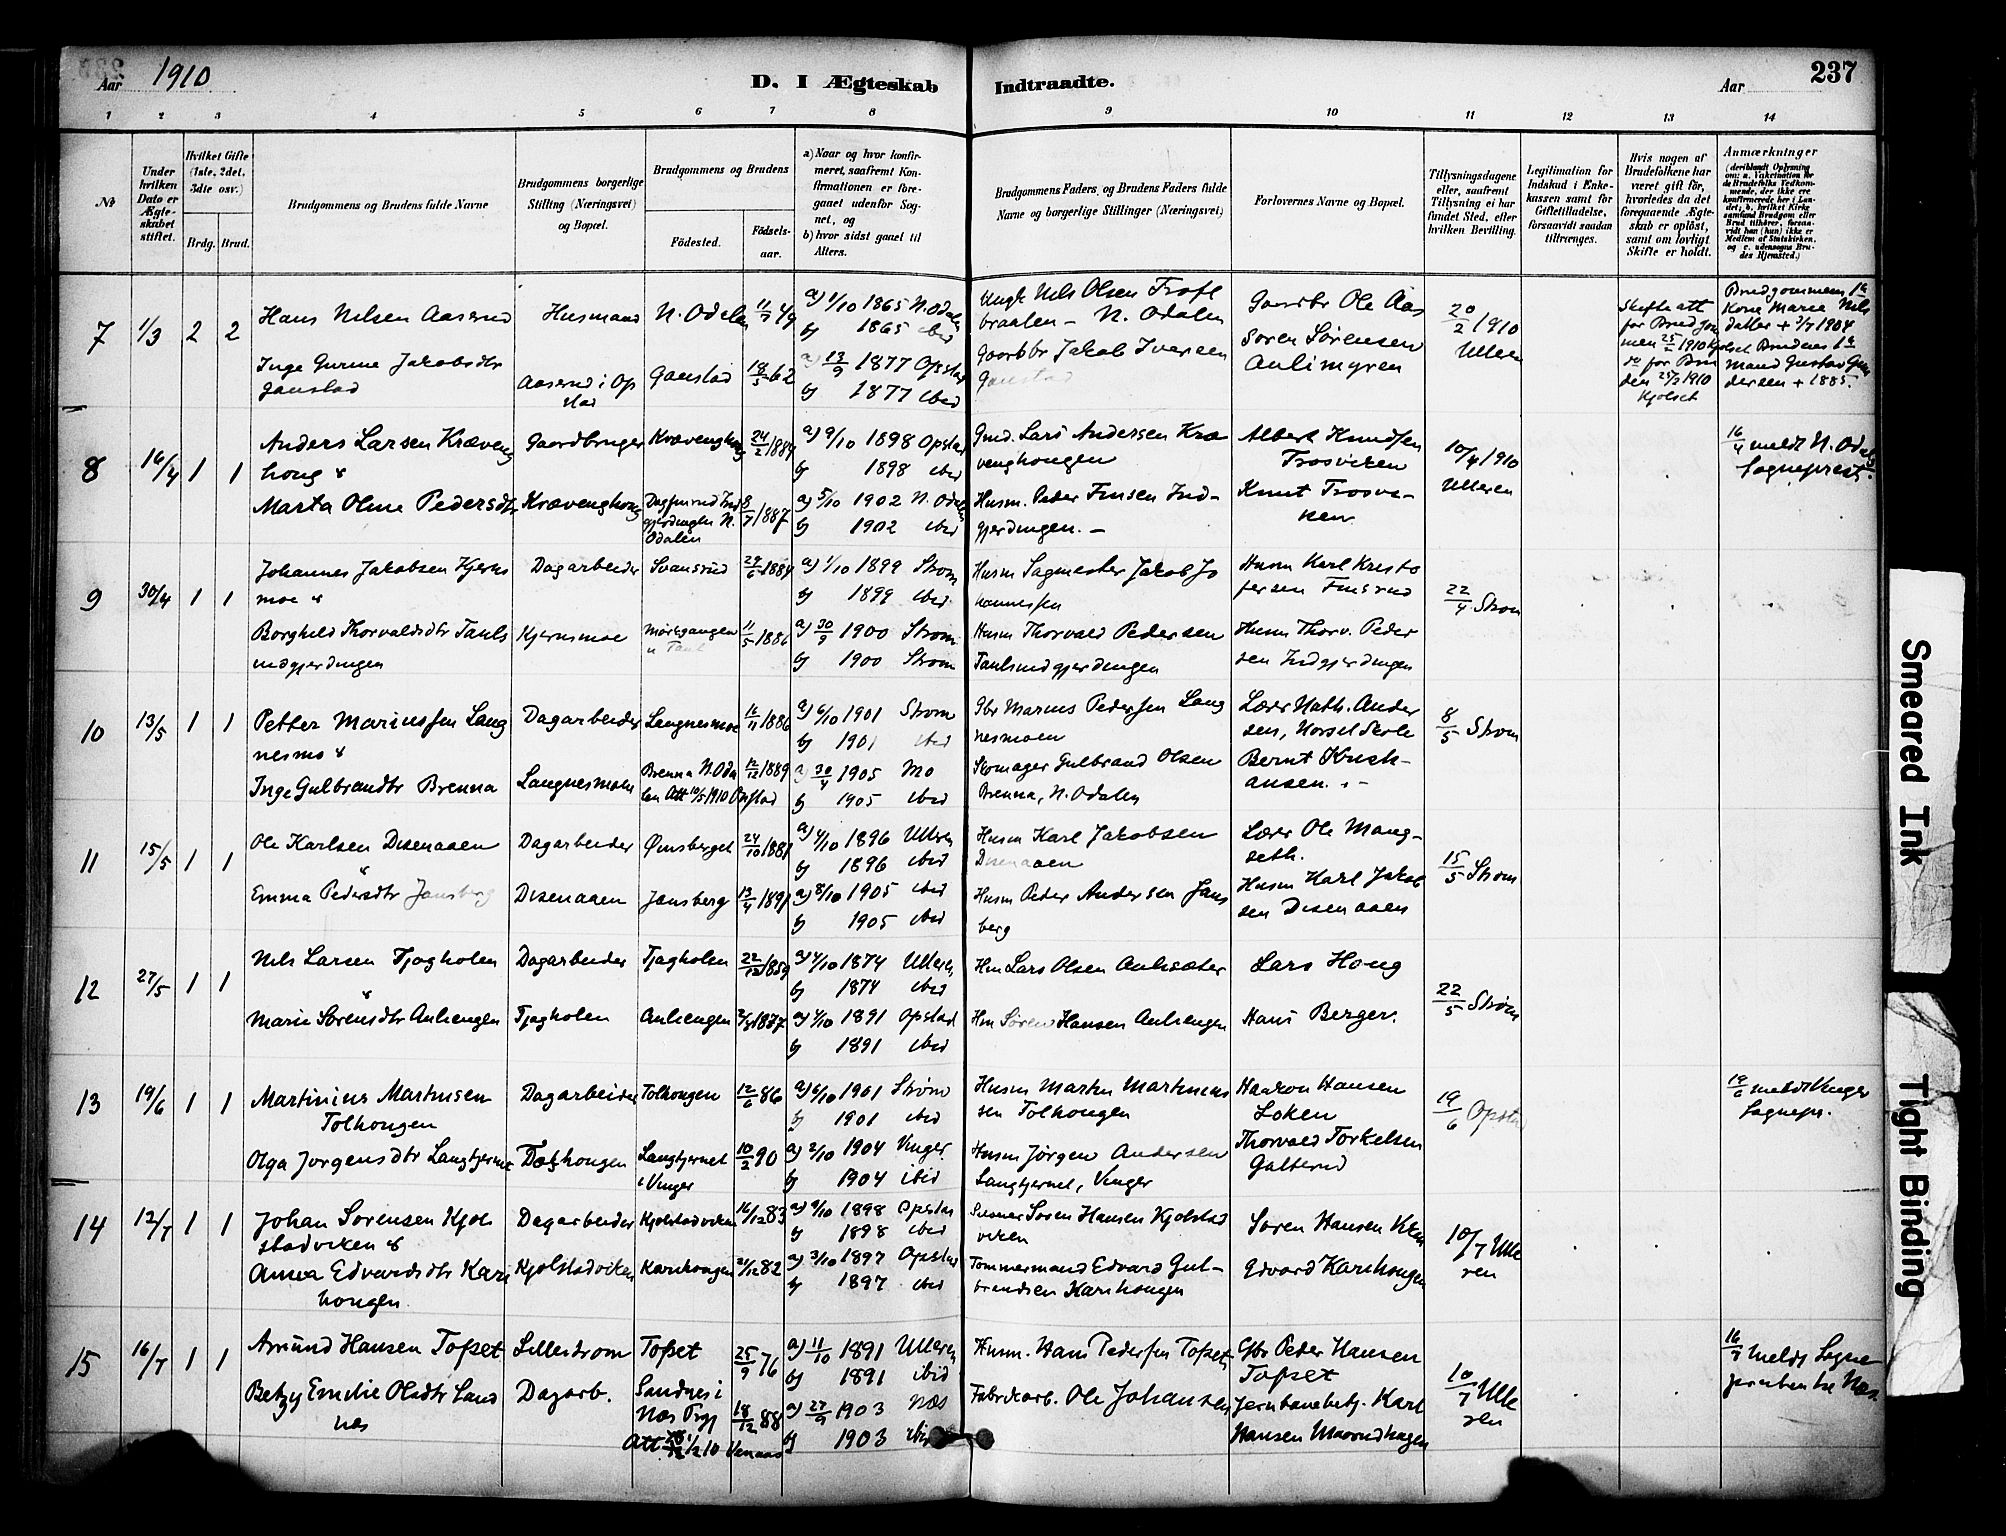 Aar 1910
D. I Ægteskab
Indtraadte.
Aar
237
1 2 3 4 5 6 7 8 9 10 11 12 13 14
№
Under hvilken Dato er Ægteskabet stiftet.
Hvilket Gifte (1ste, 2det, 3die osv.)
Brdg. Brud.
Brudgommens og Brudens fulde Navne
Brudgommens borgerlige Stilling (Næringsvei) og Bopæl.
Brudgommens og Brudens
Födested.
Födselsaar.
a) Naar og hvor konfirmeret, saafremt Konfirmationen er foregaaet udenfor Sognet, og
b) hvor sidst gaaet til Alters.
Brudgommens Faders og Brudens Faders fulde Navne og borgerlige Stillinger (Næringsvei)
Forlovernes Navne og Bopæl.
Tillysningsdagene eller, saafremt Tillysning ei har fundet Sted, efter hvilken Bevilling.
Legitimation for Indskud i Enkekassen samt for Giftetilladelse, forsaavidt saadan tiltrænges.
Hvis nogen af Brudefolkene har været gift för, hvorledes da det foregaaende Ægteskab er oplöst, samt om lovligt Skifte er holdt.
Anmærkninger
7 1/3 2 2
Hans Nilsen Aaserud
Husmand
N. Odalen 11/7 49
a) 1/10 1865 N. Odalen
b) 1865 ibid
Ungk Nils Olsen
N. Odalen
Gaardbr Ole Aas
20/2 1910
Ulleren
Inge Gurine Jakobsdtr
Gaustad
Aaserud i Opstad
Gaustad 18/5 62
a) 13/9 1877 Opstad
b) 1877 ibid
Gaardbr Jakob Iversen
Gaustad
Soren Sørensen
Aulimyren
Skifte att
for Brudgommen 25/2 1910
do for Bruden 25/2 1910
Kjolset
Brudgommens 1ste
Kone Marie Nilsdatter + 3/7 1904
Brudens 1ste
Mand Gustav Gundersen + 1885.
8 16/4 1 1
Anders Larsen Kræveng
houg &
Gaardbruger
Krævenghoug 24/2 1884
a) 9/10 1898 Opstad
b) 1898 ibid
Gmd. Lars Andersen Krævenghougen
Albert Knudsen
Trosviken
10/4 1910
Ulleren
16/4 meldt N. Odals
Sogneprest.
Marta Oline Pedersdtr
Krævenghoug
N. Odalen
8/7 1887
a) 5/10 1902 N. Odalen
b) 1902 ibid
Husm. Peder Finsen Indgjerdingen. —
Knut Trosviken
9 30/4 1 1
Johannes Jakobsen Kjerns
moe &
Dagarbeider
Svansrud 29/6 1884
a) 1/10 1899 Strøm
b) 1899 ibid.
Husm Sagmester Jakob Johannessen
Husm Karl Kristofersen Finsrud
22/4 Strøm
Borghild Thorvaldsdtr Tauls
indgjerdingen
Kjernsmoe
11/5 1886
a) 30/9 1900 Strøm
b) 1900 Strøm
Husm Thorvald Pedersen
Taulsindgjerdingen
Husm Thorv. Pedersen Indgjerdingen
10 13/5 1 1
Petter Mariussen Lang
nesmo &
Dagarbeider
Langnesmoe 16/11 1886
a) 6/10 1901 Strøm
b) 1901 ibid
Gbr Marius Pedersen Lang
nesmoen
Lærer Nath. Andersen, Norsel Skole
8/5 Strøm
Inge Gulbrandtr Brenna
Langnesmoen
Brenna N. Odalen Att 10/5 1910 Opstad
12/12 1889
a) 30/4 1905 Mo
b) 1905 ibid
Skomager Gulbrand Olsen
Brenna, N. Odalen
Bernt Kristiansen. —
11 15/5 1 1
Ole Karlsen Disenaaen
&
Dagarbeider
Ørnsberget 24/10 1881
a) 4/10 1896 Ulleren
b) 1896 ibid
Husm Karl Jakobsen
Disenaaen
Lærer Ole Mangseth.
15/5 Strøm
Emma Pedersdtr Jansberg
Disenaaen
Jansberg 13/4 1891
a) 8/10 1905 ibid
b) 1905 ibid
Husm Peder Andersen Jansberg
Husm Karl Jakobsen Disenaaen
12 27/5 1 1
Nils Larsen Tjagholen
&
Dagarbeider
Tjagholen 22/12 1859
a) 4/10 1874 Ulleren
b) 1874 ibid
Hm Lars Olsen Aulisæter
Lars Houg
22/5 Strøm
Marie Sørensdtr Auliengen
Tjagholen
Auliengen 1877
a) 4/10 1891 Opstad
b) 1891 ibid
Hm Søren Hansen Auliengen
Hans Berger.
13 19/6 1 1
Martinius Martinsen
Tolhougen
Dagarbeider
Tolhougen 12/6 86
a) 6/10 1901 Strøm
b) 1901 ibid
Husm Martin Martinussen Tolhougen
Haakon Hansen
Loken
19/6 Opstad
19/6 meldt Vinger
Sognepr.
Olga Jørgensdtr Langtjernet
Tolhougen
Langtjernet
i Vinger
10/2 90
a) 2/10 1904 Vinger
b) 1904 ibid
Husm Jørgen Andersen
Langtjernet, Vinger
Thorvald Torkelsen
Galterud
14 12/7 1 1
Johan Sørensen Kjol
stadviken &
Dagarbeider
Kjolstadviken 16/12 83
a) 9/10 1898 Opstad
b) 1898 ibid
Soren Hansen Kjolstad
viken
Søren Hansen
10/7 Ulleren
Anna Edvardsdtr Karihougen
Kjolstadviken
Karihougen 21/12 82
a) 3/10 1897 Opstad
b) 1897 ibid
Tommermand Edvard Gulbrandsen Karihougen
Edvard Karihougen
15 16/7 1 1
Amund Hansen Topset
Lillestrøm
Topset 25/9 76
a) 11/10 1891 Ulleren
b) 1891 ibid
Husm. Hans Pedersen Topset
Gbr Peder Hansen
Topset
10/7 Ulleren
16/7 meldt Sognepresten til Næs.
Betzy Emilie Olsdtr Sandnes
Dagarb.
Sandnes i
Næs
18/12 88
a) 27/9 1903 Næs
b) 1903 ibid
Fabrikarb. Ole Johansen
Jernbanebetj. Karl
Hansen
Smeared Ink
Tight Binding